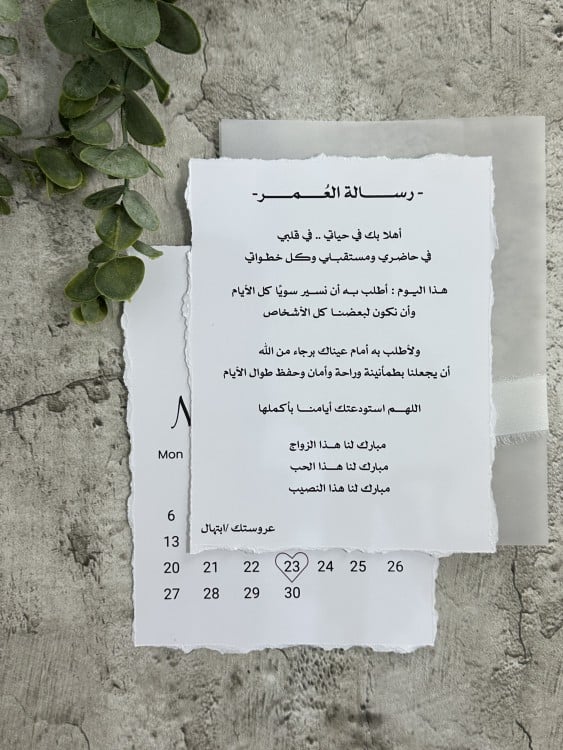 - رسالة العُمر -
أهلا بك في حياتي .. في قلبي
في حاضري ومستقبلي وكل خطواتي
هذا اليوم : أطلب به أن نسير سويًا كل الأيام
وأن نكون لبعضنا كل الأشخاص
ولأطلب به أمام عيناك برجاء من الله
أن يجعلنا بطمأنينة وراحة وأمان وحفظ طوال الأيام
اللهم استودعتك أيامنا بأكملها
مبارك لنا هذا الزواج
مبارك لنا هذا الحب
مبارك لنا هذا النصيب
عروستك /ابتهال
Mon
6
13
20 21 22 23 24 25 26
27 28 29 30